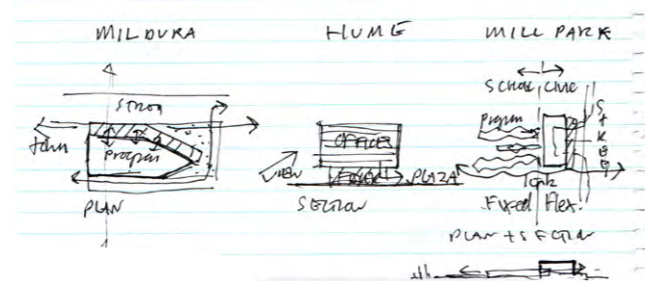 MILDURA
HUME
MILL PARK
STRONG
PROGRAM
PLAN
OFFICES
VIEW
PLAZA
SECTION
SCHOOL CIVIC
PROGRAM
STREET
FIXED FLEX.
PLAN + SECTION